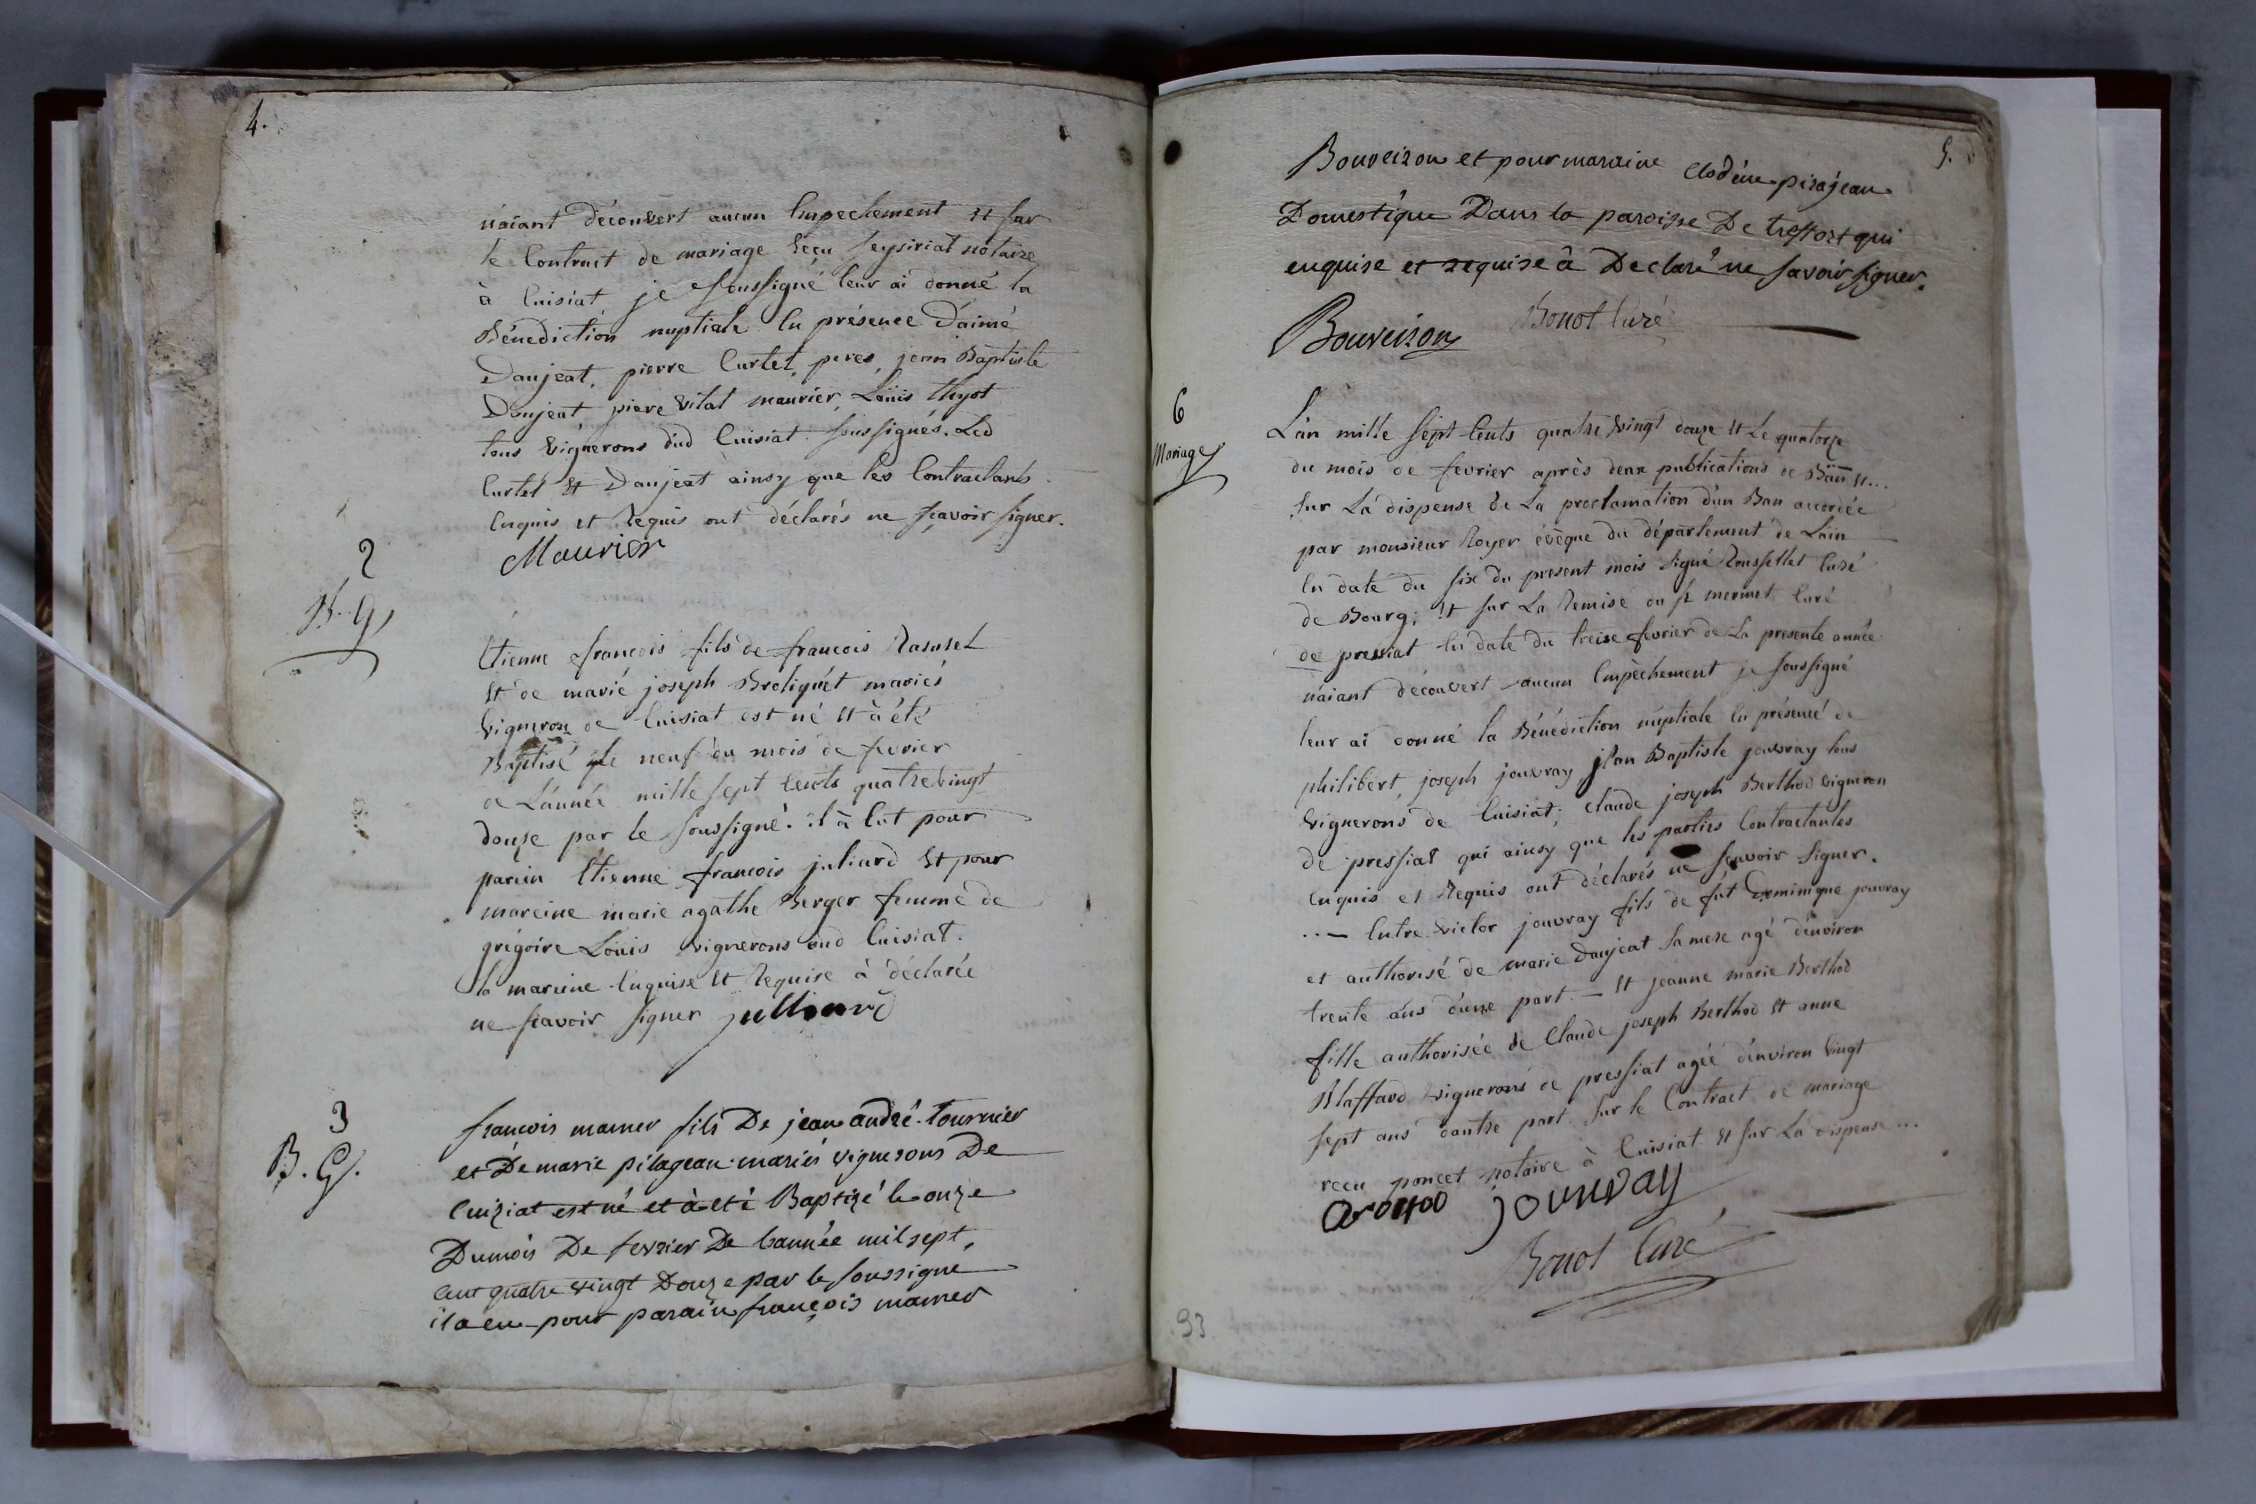 4.
n'aiant découvert aucun Empechement et sur
le Contract de mariage reçu feysiriat notaire
à Cuisiat je soussigné leur ai donné la
Bénediction nuptiale En présence d'aimé
Daujeat, pierre Curtet, peres, jean Baptiste
Daujeat, piere vital maurier, Louis thyot
tous vignerons dud Cuisiat soussignés. Led
Curtet et Daujeat ainsy que les Contractants
Enquis et Requis ont déclarés ne sçavoir signer.
Maurier
2
B. G.
Etienne francois fils de francois
et de marie joseph Broliquet mariés
vigneron de Cuisiat est né et à été
Baptisé le neuf du mois de fevrier
de L'année mille sept cents quatrevingt
douze par le soussigné. il à Eut pour
parein Etienne francois juliard et pour
mareine marie agathe Berger femme de
grégoire Louis vignerons dud Cuisiat.
la mareine Enquise et Requise à déclarée
ne scavoir signer julliard
3
B. G.
francois mamer fils De jean andré tournier
et De marie pilagean mariés vignerons De
Cuiziat est né et à eté Baptizé le onze
Dumois De fevrier De l'année mil sept
cent quatre vingt Douze par le soussigne
il a eu pour parain françois mamer
5.
Bouveizon et pour maraine Clodine pirajean
Domestique Dans la paroisse De treffort qui
enquise et requise â Declaré ne savoir signer.
Bouveizon Bonot Curé
6
Mariage
L'an mille sept Cents quatre vingt douze et Le quatorze
du mois de fevrier après deux publications de Bann et...
sur La dispense de La proclamation d'un Ban accordée
par monsieur Royer évêque du département de L'ain
En date du six du present mois signé Rousselet Curé
de Bourg; et sur La Remise du sr mermet Curé
de pressiat En date du treise fevrier de La presente année
n'aiant découvert aucun Empêchement je soussigné
leur ai donné la Bénédiction nuptiale En présence de
philibert, joseph jouvray jean Baptiste jouvray tous
vignerons de Cuisiat; claude joseph Berthod vigneron
de pressiat qui ainsy que les parties Contractantes
Enquis et Requis ont déclarés ne sçavoir signer.
..— Entre victor jouvray fils de fut Dominique jouvray
et authorisé de marie Daujeat sa mere agé d'environ
trente ans d'une part — et jeanne marie Berthod
fille authorisée de Claude joseph Berthod et anne
Blaffard vignerons de pressiat agée d'environ vingt
sept ans d'autre part sur le Contract de mariage
recu poncet notaire à Cuisiat et sur La dispense...
jouvray
Bonot Curé
93